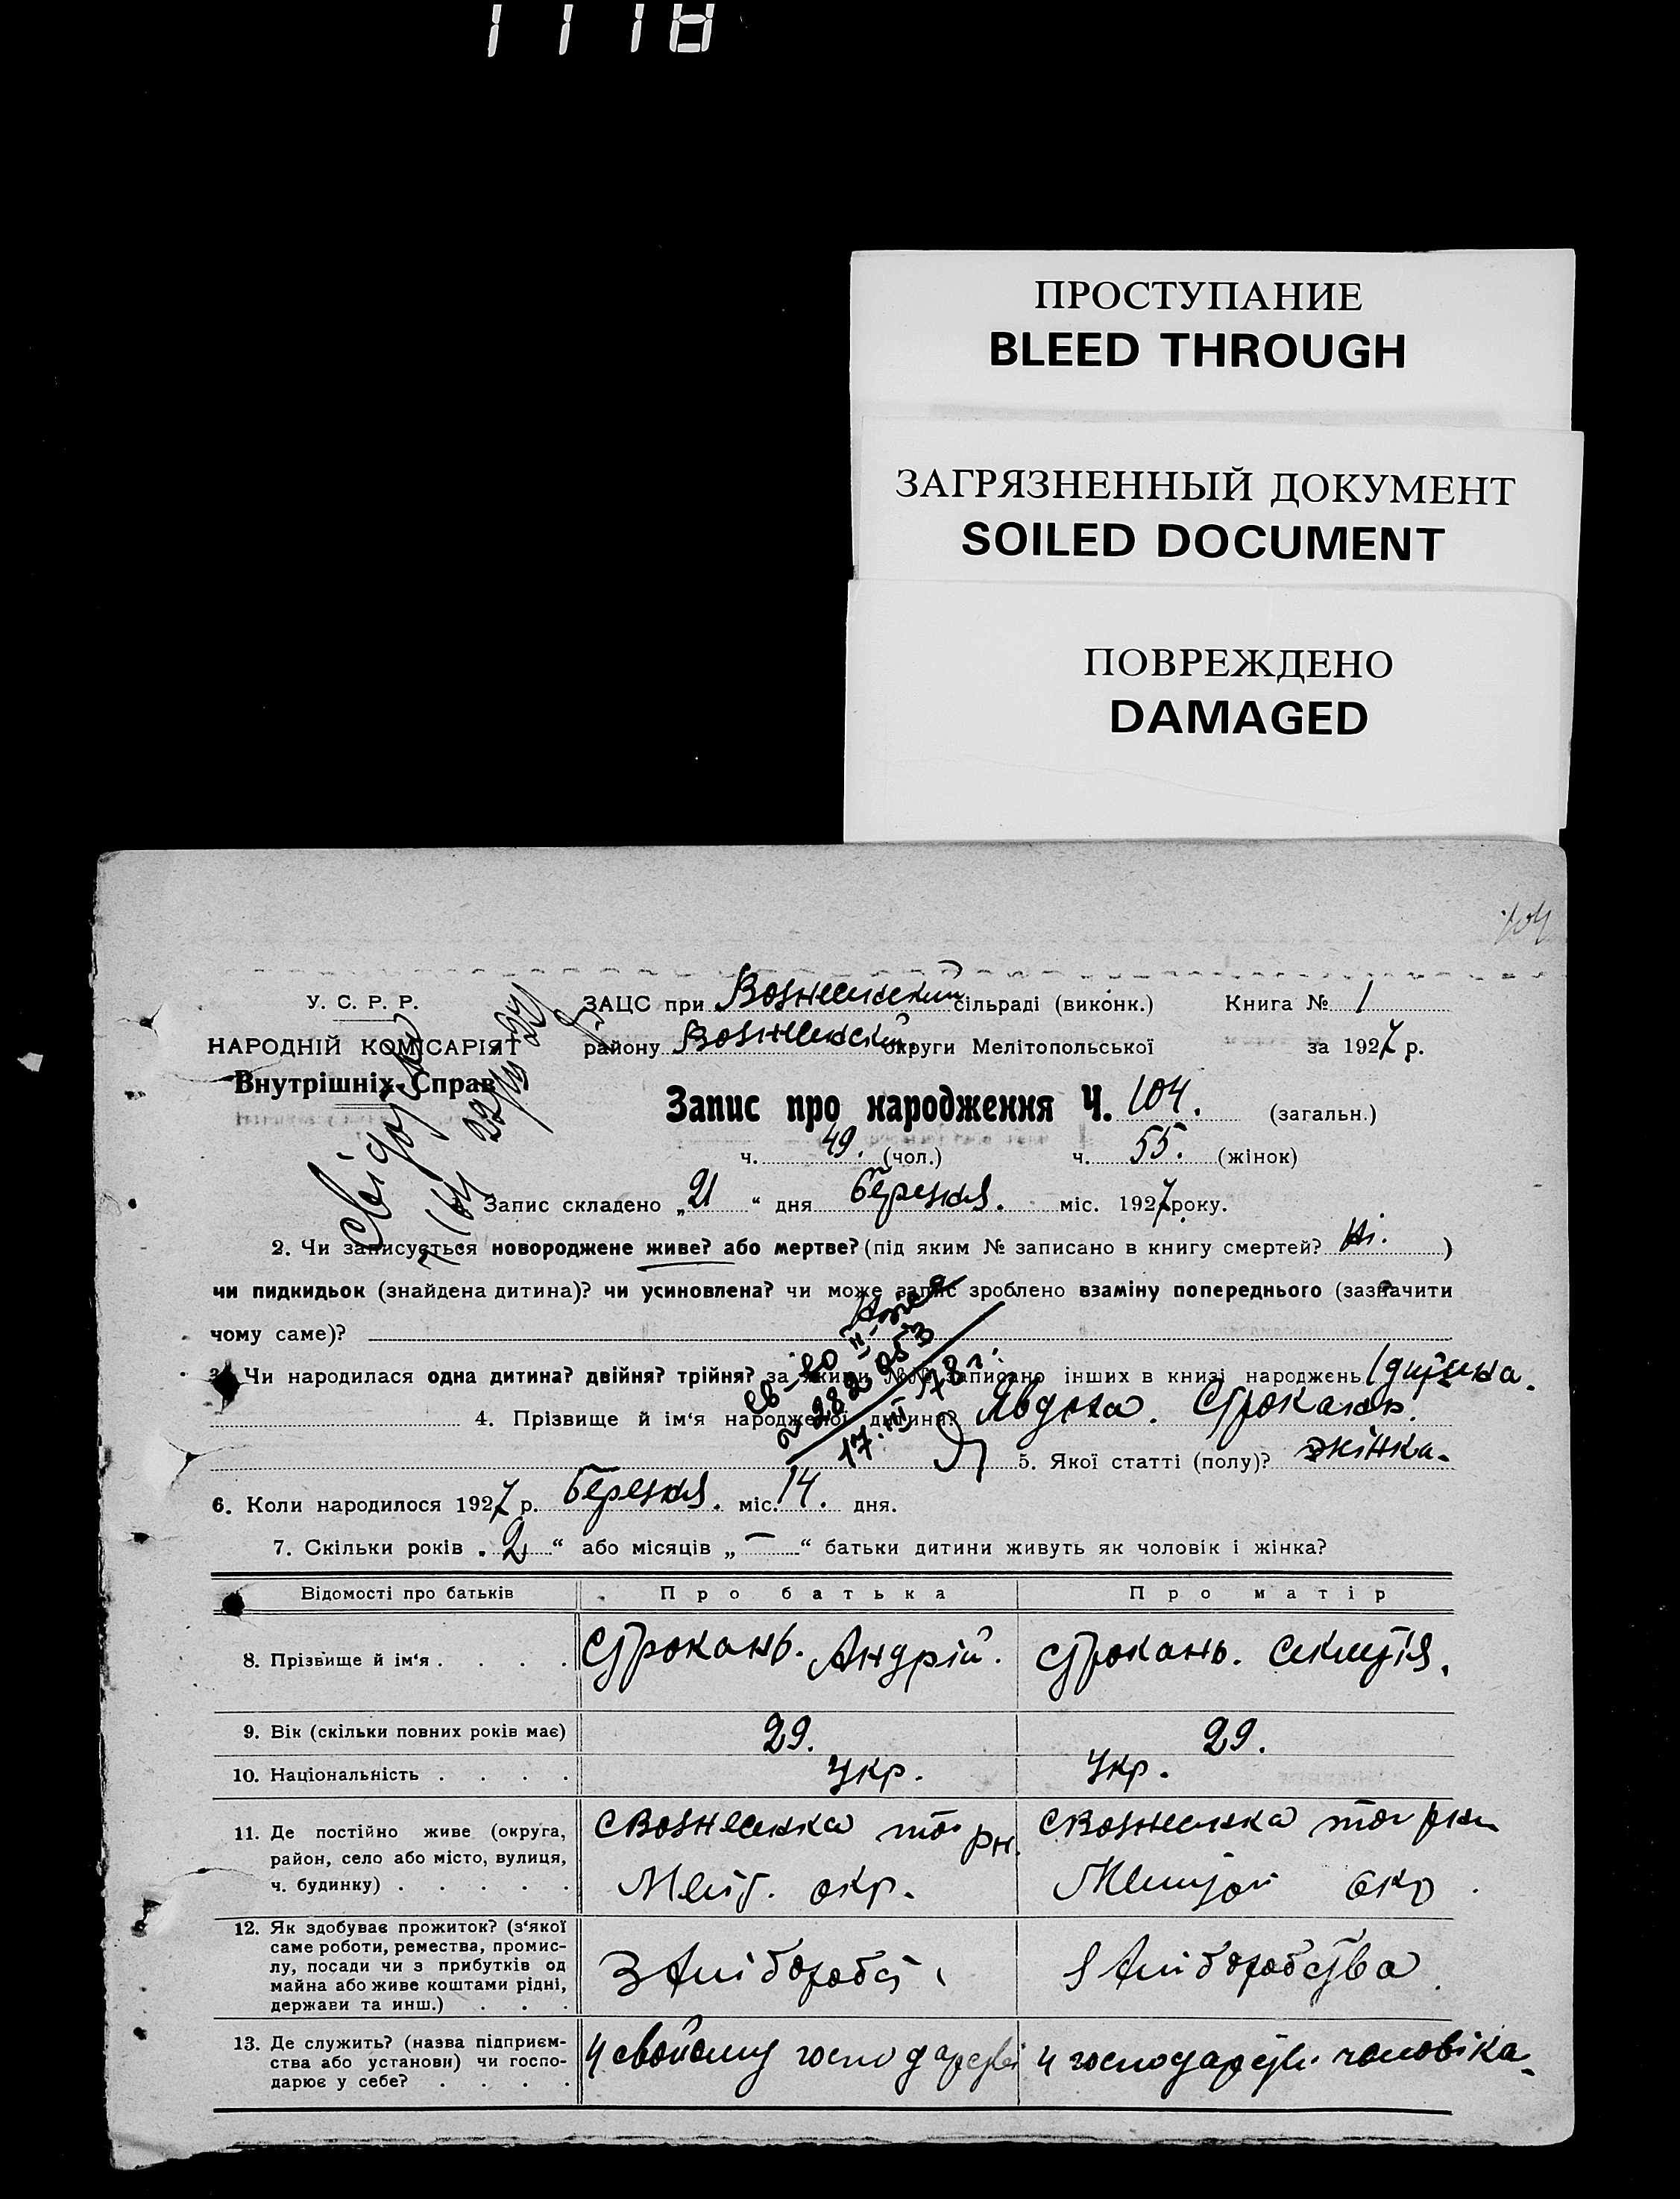 1118
ПРОСТУПАНИЕ
BLEED THROUGH
ЗАГРЯЗНЕННЫЙ ДОКУМЕНТ
SOILED DOCUMENT
ПОВРЕЖДЕНО
DAMAGED
104
У. С. Р. Р.
НАРОДНІЙ КОМІСАРІЯТ
Внутрішніх Справ
ЗАЦС при Вознесенский сільраді (виконк.) Книга № 1
району Вознесенский округи Мелітопольської за 1927 р.
Запис про народження Ч. 104. (загальн.)
ч. 49. (чол.) ч. 55. (жінок)
Запис складено „21“ дня березня. міс. 1927 року.
2. Чи записується новороджене живе? або мертве? (під яким № записано в книгу смертей? Ні. )
чи пидкидьок (знайдена дитина)? чи усиновлена? чи може запис зроблено взаміну попереднього (зазначити
чому саме)?
3. Чи народилася одна дитина? двійня? трійня? за якими №№ записано інших в книзі народжень 1 дитина.
4. Прізвище й ім‘я народженої дитини? Явдоха. Строкань.
17.III 78 г.
5. Якої статті (полу)? жінка.
6. Коли народилося 1927 р. березня. міс. 14. дня.
7. Скільки років „2“ або місяців „—“ батьки дитини живуть як чоловік і жінка?
Відомості про батьків Про батька Про матір
8. Прізвище й ім‘я . . . . Строкань. Андрій. Строкань.
9. Вік (скільки повних років має) 29. 29.
10. Національність . . . . Укр. Укр.
11. Де постійно живе (округа, район, село або місто, вулиця, ч. будинку) . . . . . С Вознесенка того рн. Меліт. окр. С Вознесенка того рн Меліто окр.
12. Як здобуває прожиток? (з‘якої саме роботи, ремества, промислу, посади чи з прибутків од майна або живе коштами рідні, держави та инш.) . . .
13. Де служить? (назва підприємства або установи) чи господарює у себе? . . . . У свойому господарстві У господарстві чоловіка.